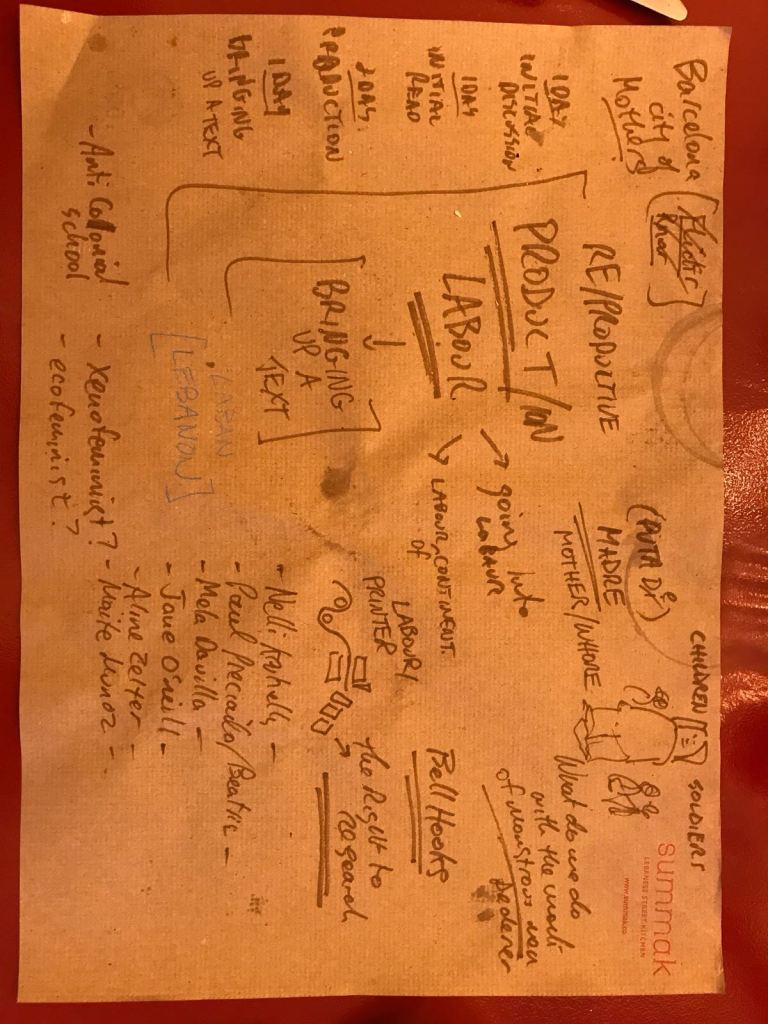 Barcelona
city of
Mothers
1 DAY
INITIAL
DISCUSSION
1 DAY
INITIAL
READ
2 DAYS
PRODUCTION
1 DAY
BRINGING
UP A TEXT
RE/PRODUCTIVE
PRODUCT/ON
LABOUR
[BRINGING
UP A
TEXT]
LABAN
[LEBANON]
- Anti Colonial
school
- Xenofeminist?
- ecofeminist?
going into
labour
LABOUR, CONTINENT.
OF
(PUTA DE)
MADRE
MOTHER/WHORE
CHILDREN
SOLDIERS
summak
LEBANESE STREET KITCHEN
www.summak.co
What do we do
with the work
of monstrous
Bell Hooks
LABOUR/
PRINTER
the Right to
research
- Nelli
- Paul Preciado/Beatriz -
- Mela Davilla -
- Jane O'neill -
- Aline Zelter -
- Maite Munoz -